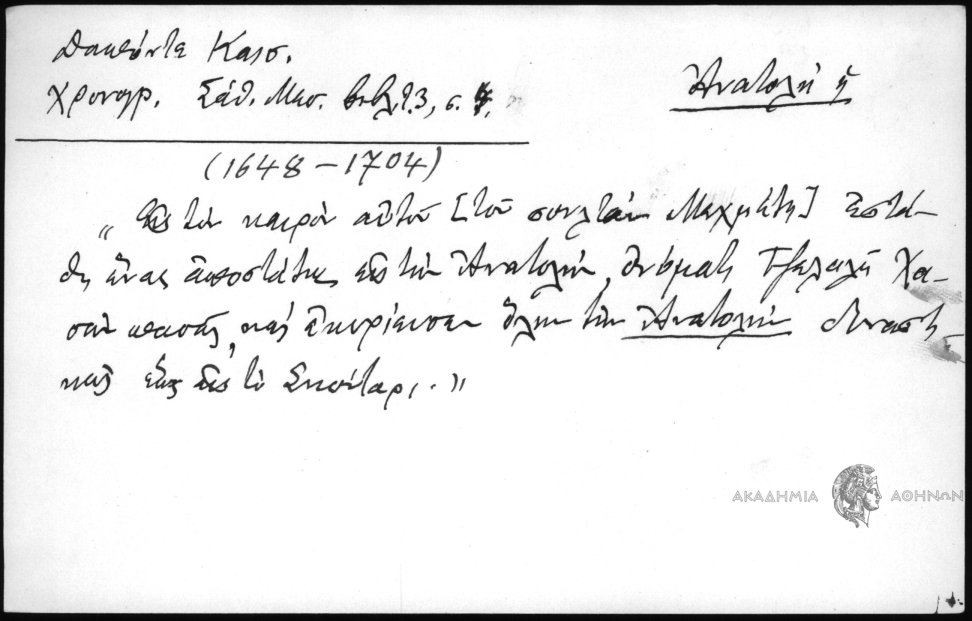 Δαπόντε Καισ.
Χρονογρ. Σάθ. Μεσ. βιβλ. τ. 3, σ.
Ἀνατολή ἡ
(1648–1704)
„ Εἰς τὸν καιρὸν αὐτοῦ [τοῦ σουλτὰν Μεχμέτη] ἐστά-
θη ἕνας ἀποστάτης εἰς τὴν Ἀνατολὴν, ὀνόματι Τζελαλῆ Χα-
σὰν πασᾶς, καὶ ἐκυρίευσεν ὅλην τὴν Ἀνατολὴν δυναστι-
κῶς ἕως εἰς τὸ Σκούταρι. "
ΑΚΑΔΗΜΙΑ ΑΘΗΝΩΝ